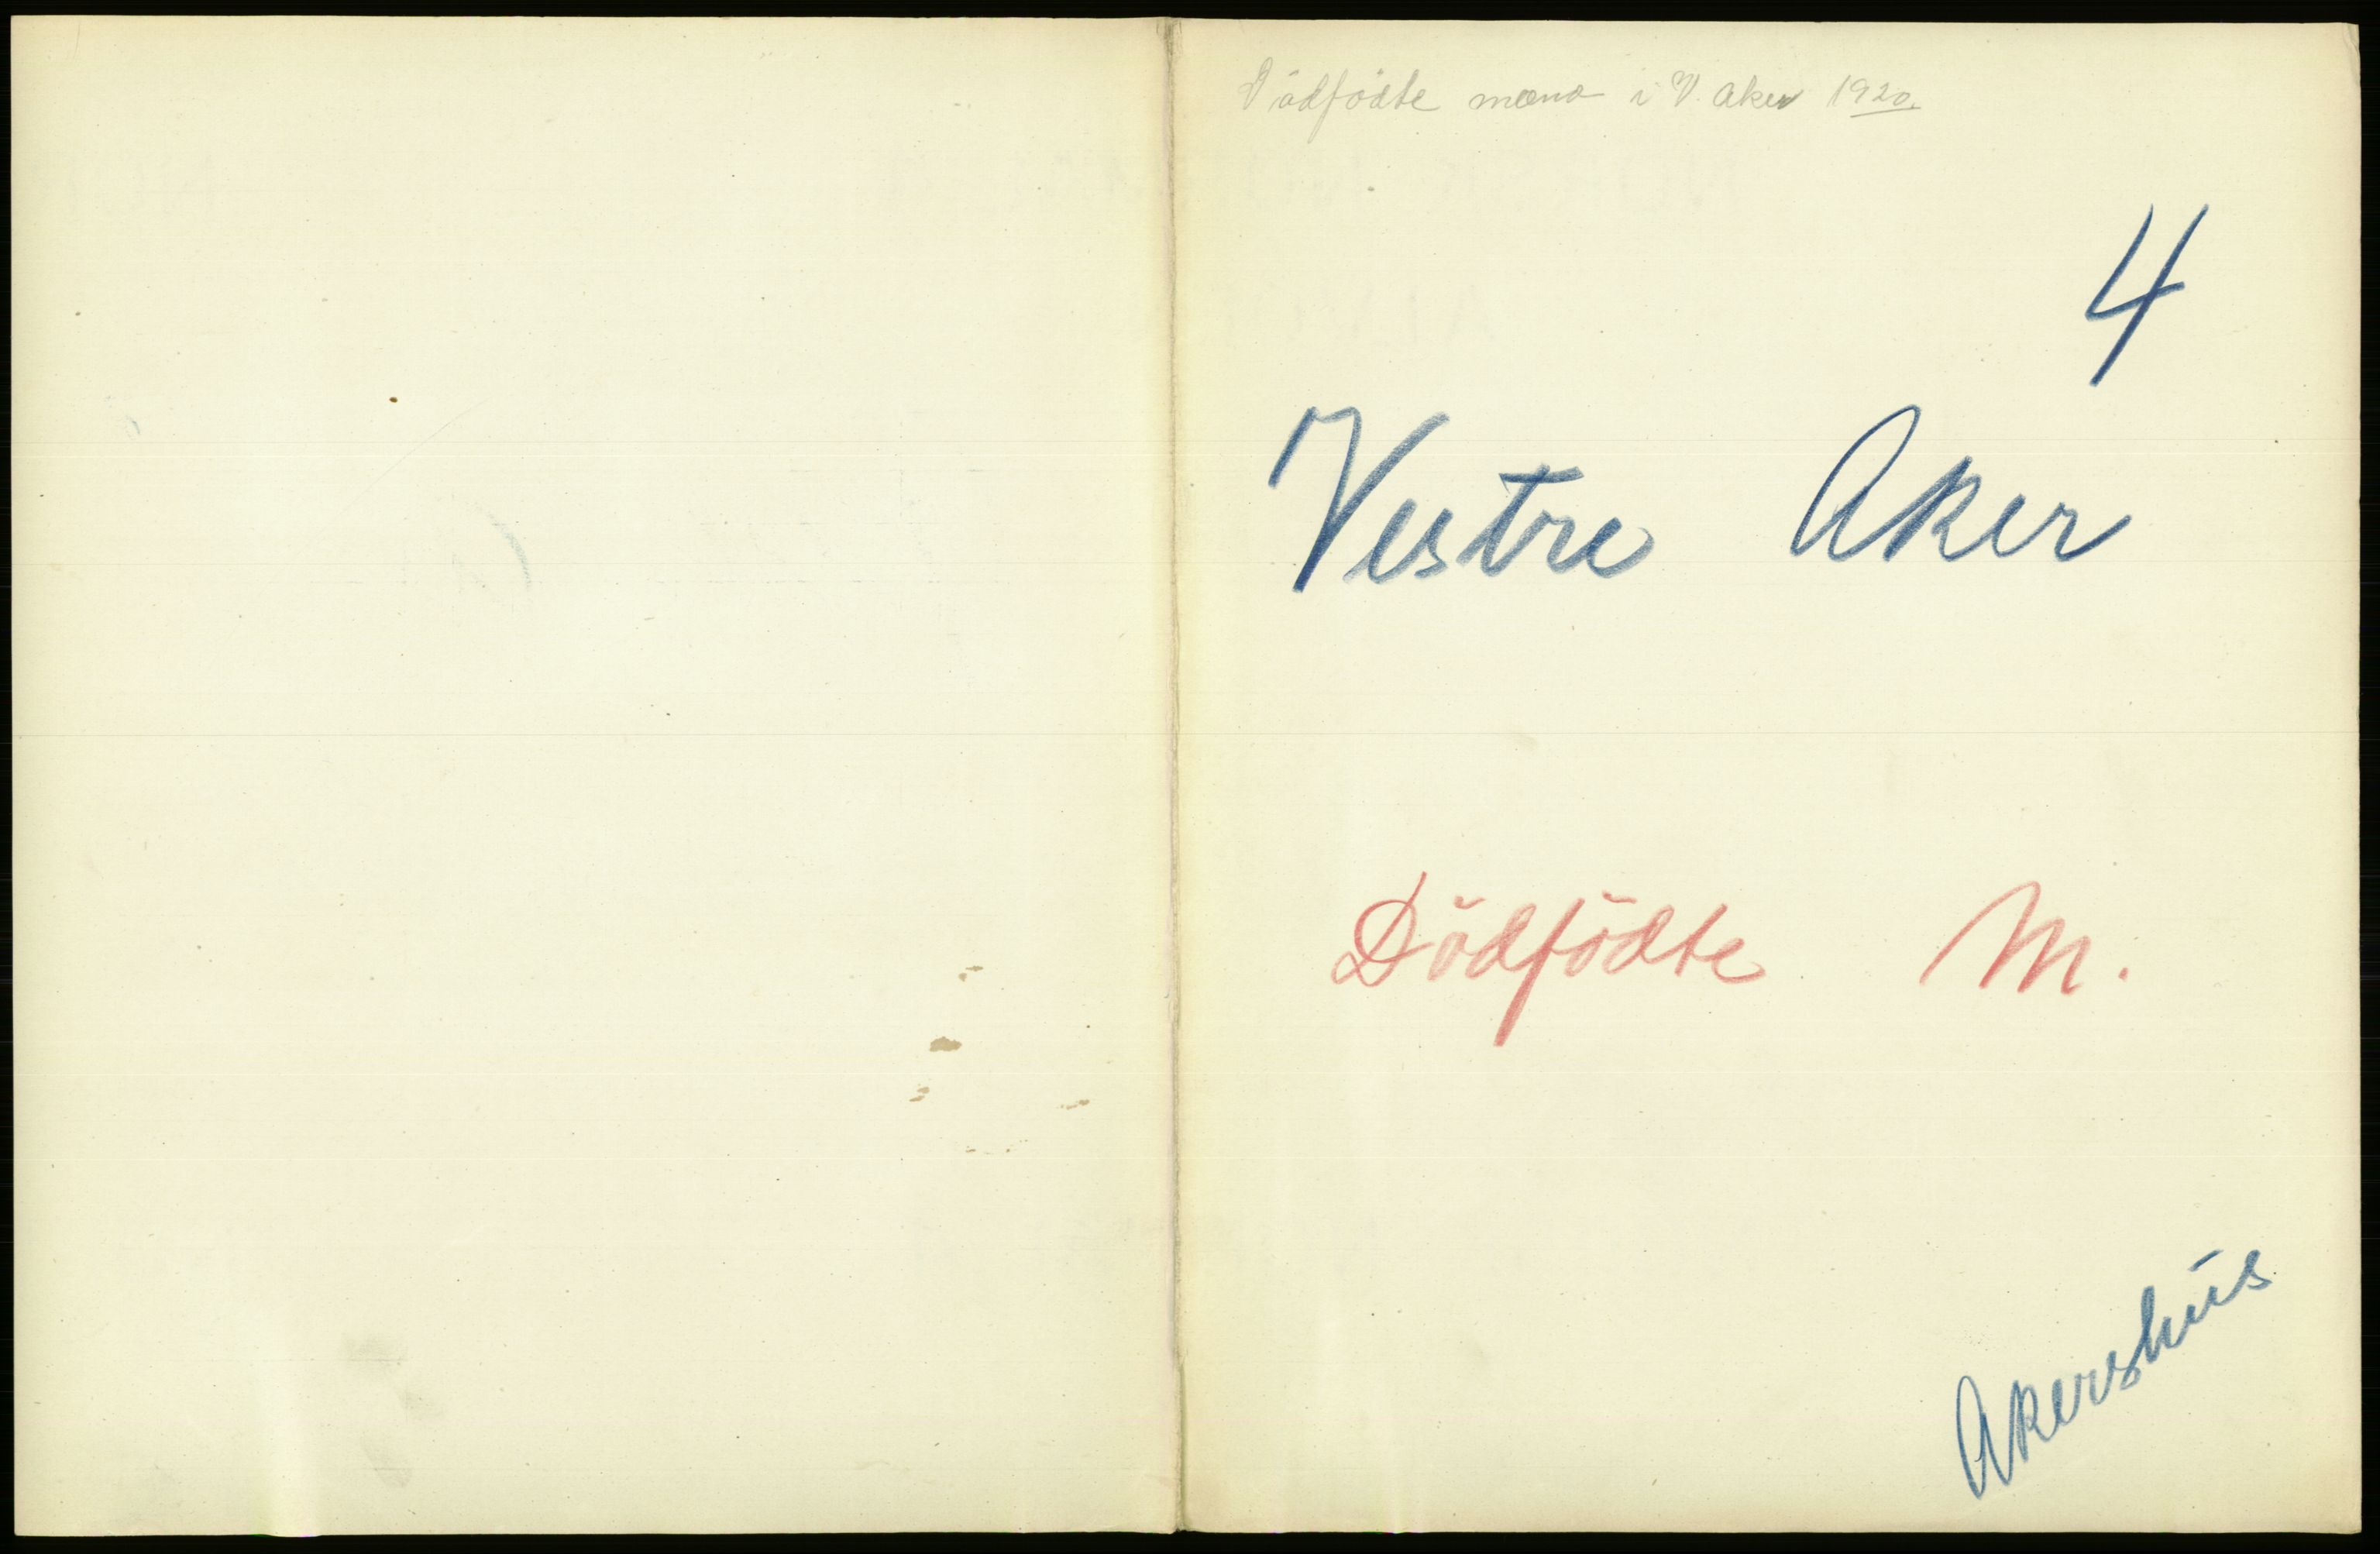 Dödfödte mænd i V. Aker 1920.
4
Vestre Aker
Dödfödte M.
Akershus